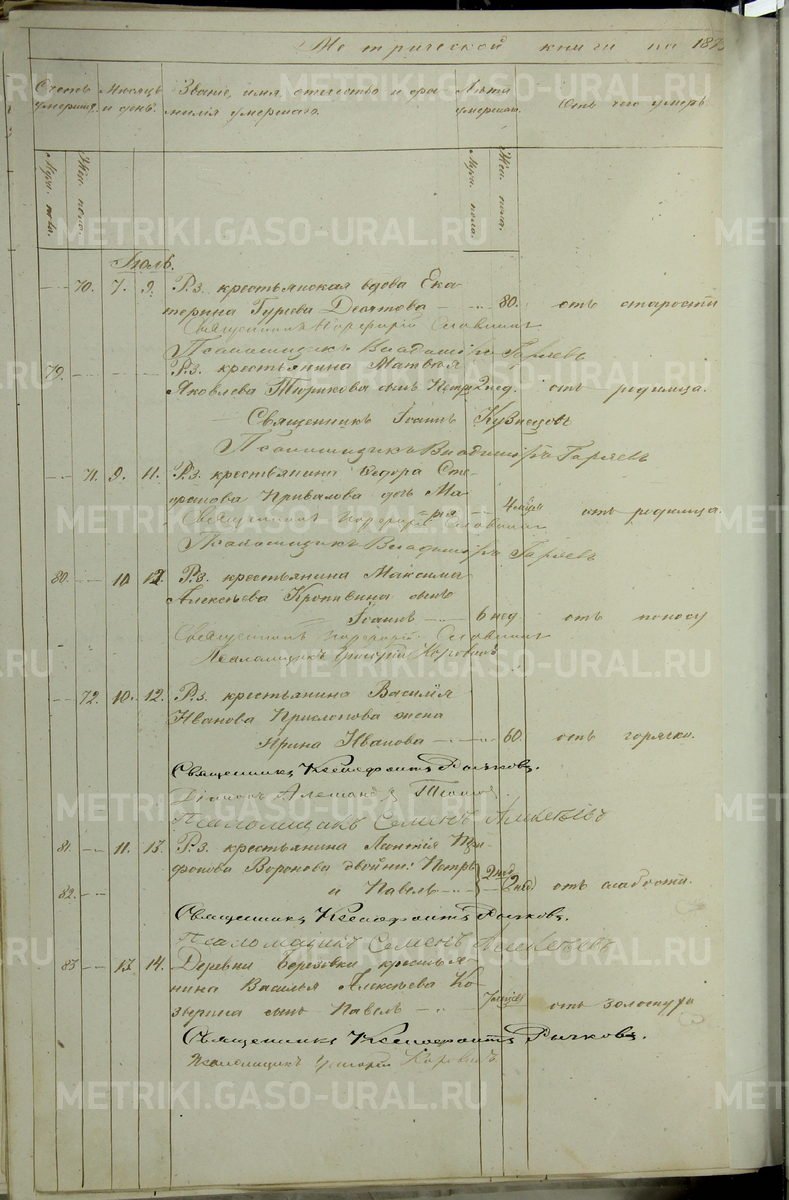 Метрической книги на 187
Счетъ умершихъ.
Мѣсяцъ и день.
Званіе, имя, отчество и фа-
милія умершаго.
Лѣта умершаго.
Отъ чего умеръ
Муж. пола.
Жен. пола.
Муж. пола.
Жен. пола.
Іюль.
70. 7. 9. Р.з. крестьянская вдова Ека-
терина Гурьева Десятова 80. отъ старости
Священникъ Славнинъ
Псаломщикъ Владиміръ Гаряевъ
79. Р.з. крестьянина Матвѣя
Яковлева Тюрикова сынъ Петръ 2 нед. отъ родимца.
Священникъ Іоаннъ Кузнецовъ
Псаломщикъ Владиміръ Гаряевъ
71. 9. 11. Р.з. крестьянина Ѳедора Сте-
фанова Привалова дочь Ма-
рія отъ родимца.
Священникъ Славнинъ
Псаломщикъ Владиміръ Гаряевъ
80. 10. 12. Р.з. крестьянина Максима
Алексѣева Кропивина сынъ
Іоаннъ 6 нед. отъ поносу
Священникъ Славнинъ
Псаломщикъ Григорій Коровинъ
72. 10. 12. Р.з. крестьянина Василія
Иванова Приклонова жена
Ирина Иванова 60. отъ горячки.
Священникъ Ксенофонтъ Рычковъ.
Діаконъ
Псаломщикъ Семенъ Алексѣевъ
81. 11. 13. Р.з. крестьянина
Воронова двойни: Петръ 2 нед
82. и Павелъ 2 нед отъ слабости.
Священникъ Ксенофонтъ Рычковъ.
Псаломщикъ Семенъ Алексѣевъ
83. 13. 14. Деревни Березовки крестья-
нина Василья Алексѣева Ко-
зырина сынъ Павелъ отъ золотухи
Священникъ Ксенофонтъ Рычковъ.
Псаломщикъ Григорій Коровинъ
METRIKI.GASO-URAL.RU